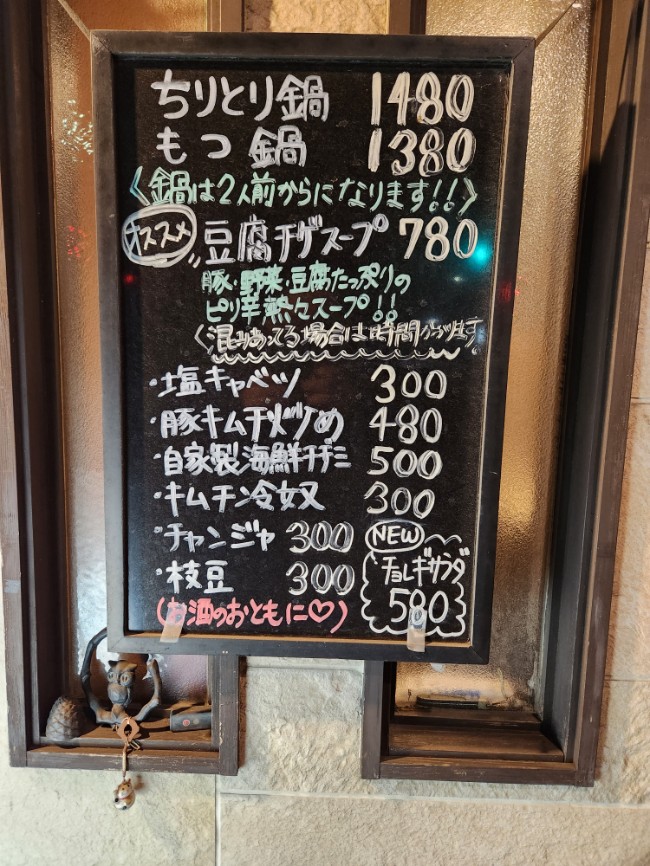 ちりとり鍋 1480
もつ鍋 1380
〈鍋は2人前からになります!!〉
オススメ 豆腐チゲスープ 780
豚・野菜・豆腐たっぷりの
ピリ辛熱々スープ!!
〈混みあってる場合はお時間かかります
・塩キャベツ 300
・豚キムチ炒め 480
・自家製海鮮チヂミ 500
・キムチン冷奴 300
・チャンジャ 300
・枝豆 300
(お酒のおともに♡)
NEW
チョレギサラダ
580